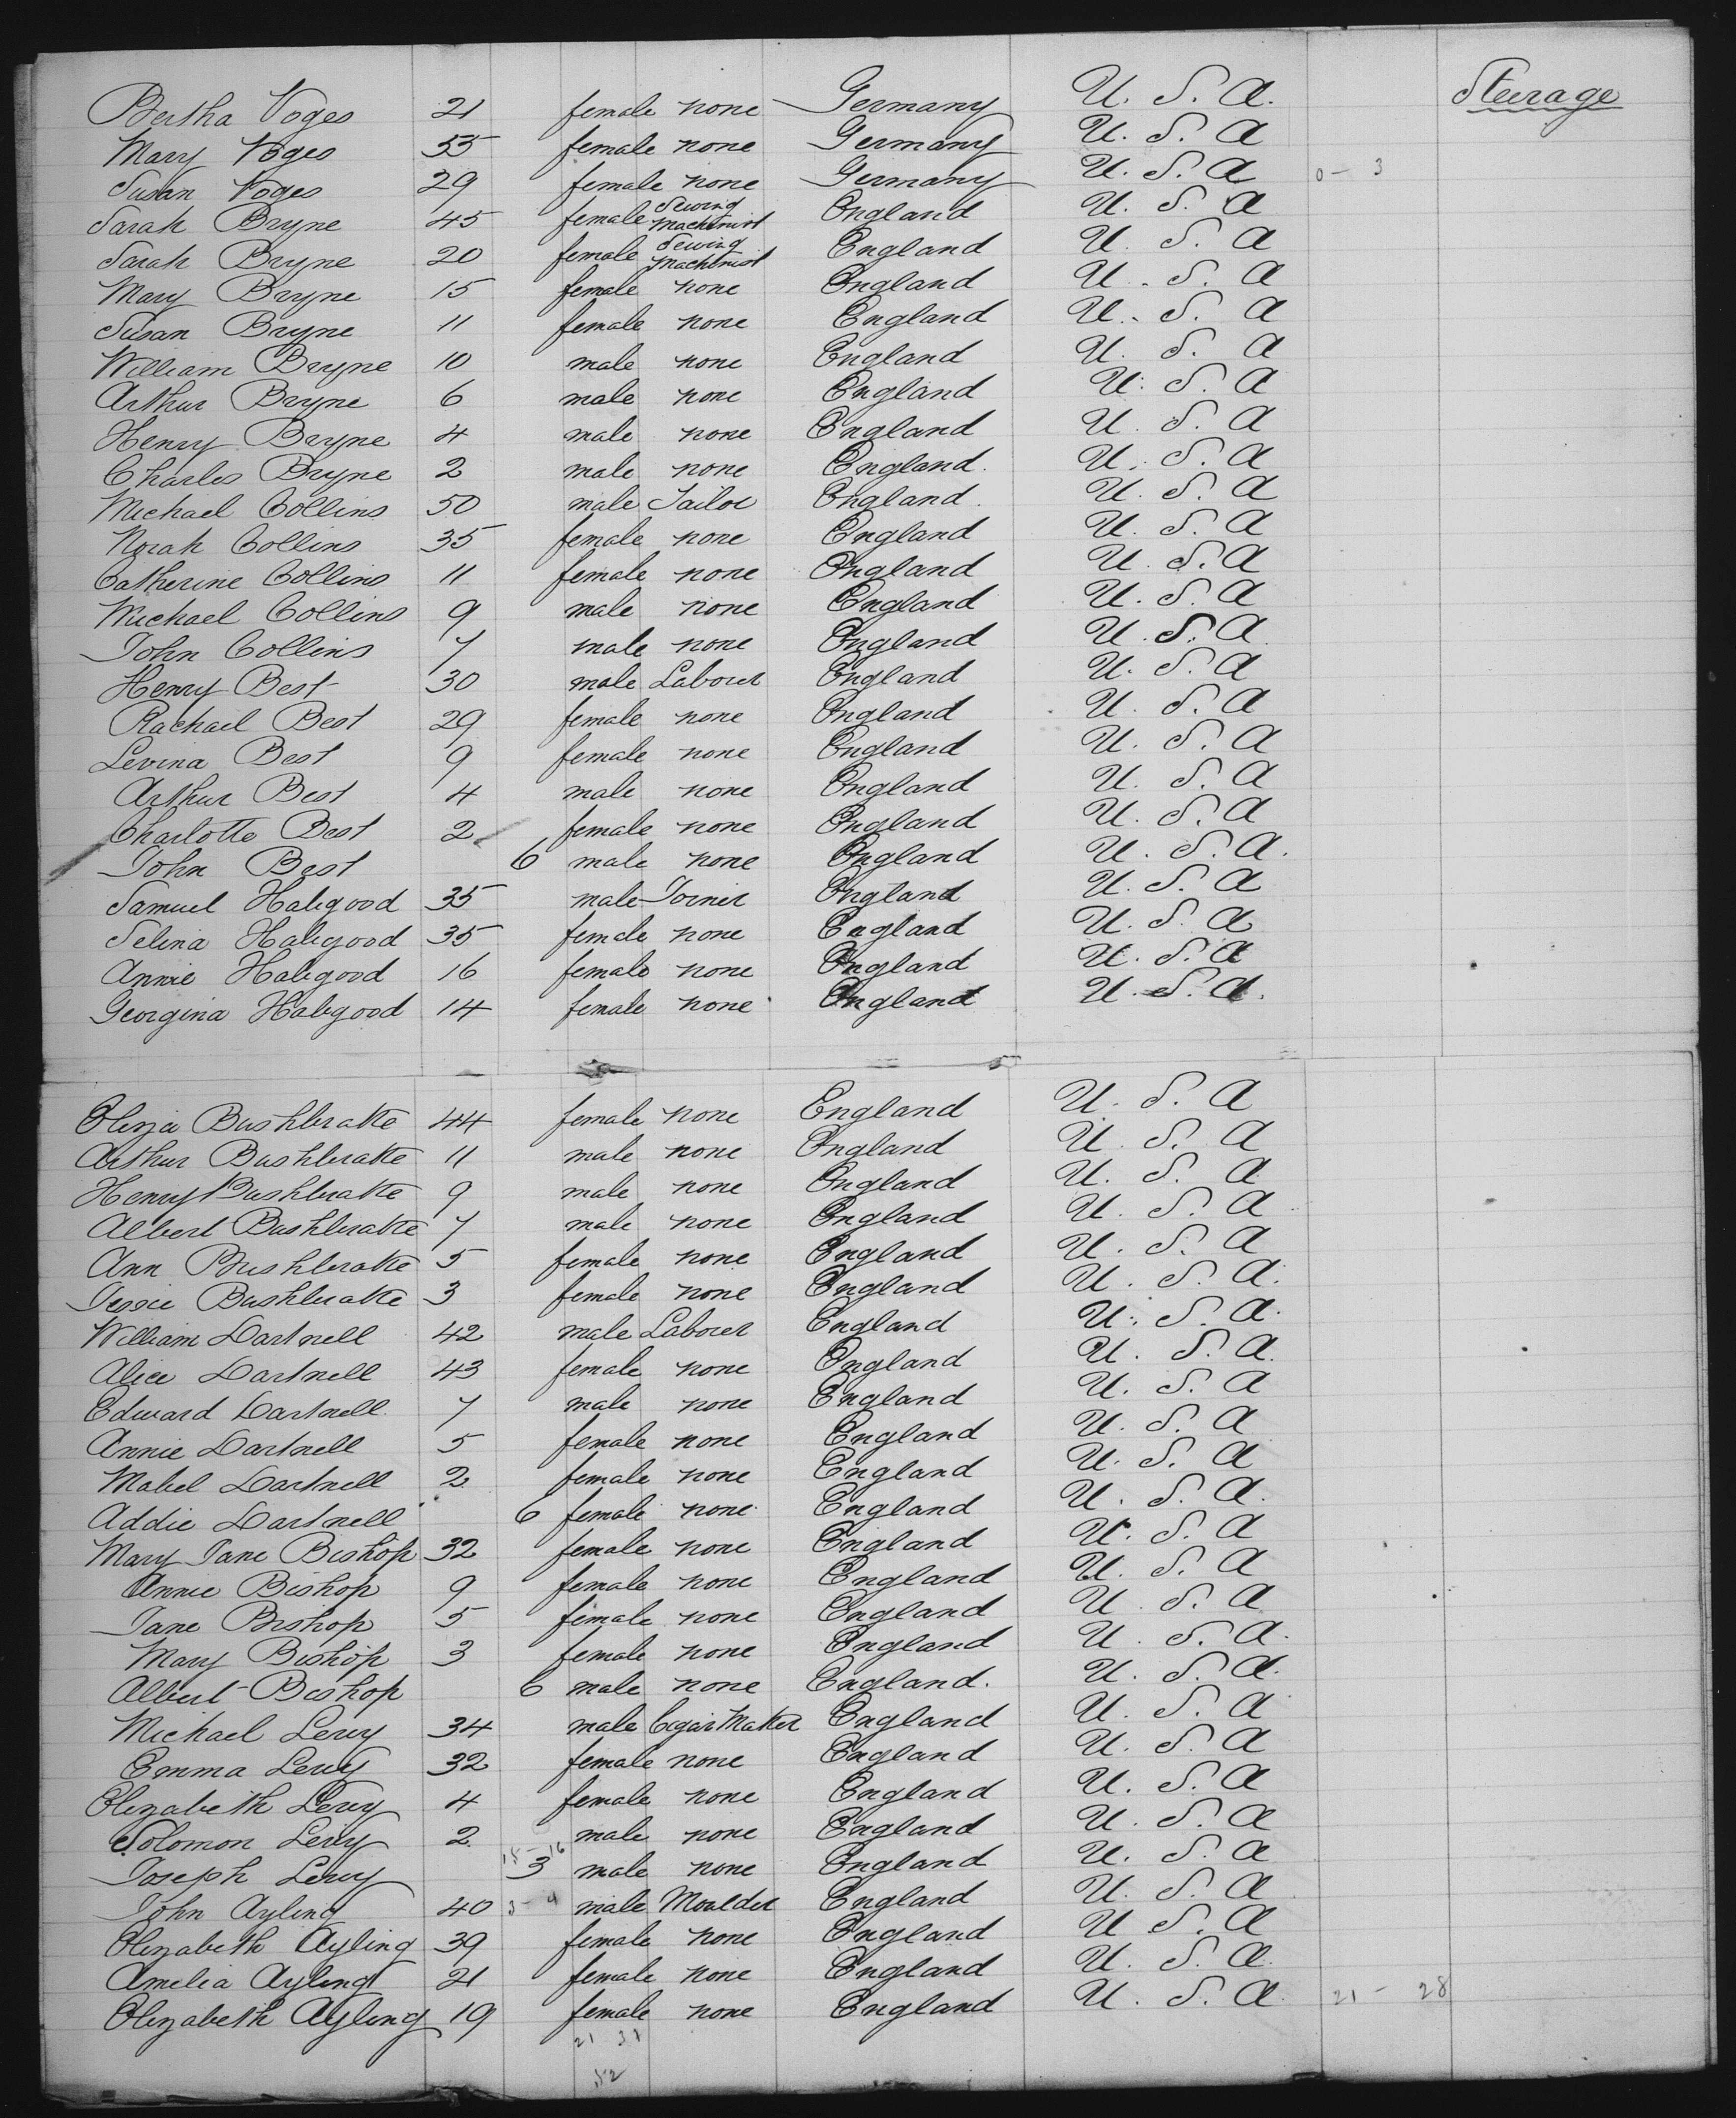 Steerage
Bertha Voges 21 female none Germany U. S. A.
Mary Voges 55 female none Germany U. S. A
Susan Voges 29 female none Germany U. S. A 0 - 3
Sarah Bryne 45 female Sewing Machinist England U. S. A
Sarah Bryne 20 female Sewing Machinist England U. S. A
Mary Bryne 15 female none England U. S. A
Susan Bryne 11 female none England U. S. A
William Bryne 10 male none England U. S. A
Arthur Bryne 6 male none England U. S. A
Henry Bryne 4 male none England U. S. A
Charles Bryne 2 male none England. U. S. A
Michael Collins 50 male England. U. S. A
Norah Collins 35 female none England U. S. A
Catherine Collins 11 female none England U. S. A
Michael Collins 9 male none England U. S. A
John Collins 7 male none England U. S. A
Henry Best 30 male Laborer England U. S. A
Rachael Best 29 female none England U. S. A
Levina Best 9 female none England U. S. A
Arthur Best 4 male none England U. S. A
Charlotte Best 2 female none England U. S. A
John Best 6 male none England U. S. A.
Samuel Habgood 35 male Joiner England U. S. A
Selina Habgood 35 female none England U. S. A
Annie Habgood 16 female none England U. S. A
Georgina Habgood 14 female none England U. S. A.
Eliza 44 female none England U. S. A
Arthur 11 male none England U. S. A
Henry 9 male none England U. S. A
Albert 7 male none England U. S. A
Ann 5 female none England U. S. A
Jessie 3 female none England U. S. A.
William Dartnell 42 male Laborer England U. S. A.
Alice Dartnell 43 female none England U. S. A.
Edward Dartnell 7 male none England U. S. A
Annie Dartnell 5 female none England U. S. A
Mabel Dartnell 2 female none England U. S. A
Addie Dartnell 6 female none England U. S. A.
Mary Jane Bishop 32 female none England U. S. A
Annie Bishop 9 female none England U. S. A
Jane Bishop 5 female none England U. S. A
Mary Bishop 3 female none England U. S. A.
Albert Bishop 6 male none England. U. S. A.
Michael Levy 34 male Cigar Maker England U. S. A
Emma Levy 32 female none England U. S. A
Elizabeth Levy 4 female none England U. S. A
Solomon Levy 2 male none England U. S. A
Joseph Levy 3 male none England U. S. A
John Ayling 40 3 - 4 male Moulder England U. S. A
Elizabeth Ayling 39 female none England U. S. A
Amelia Ayling 21 female none England U. S. A.
Elizabeth Ayling 19 female none England U. S. A. 21 - 28
21 31
52